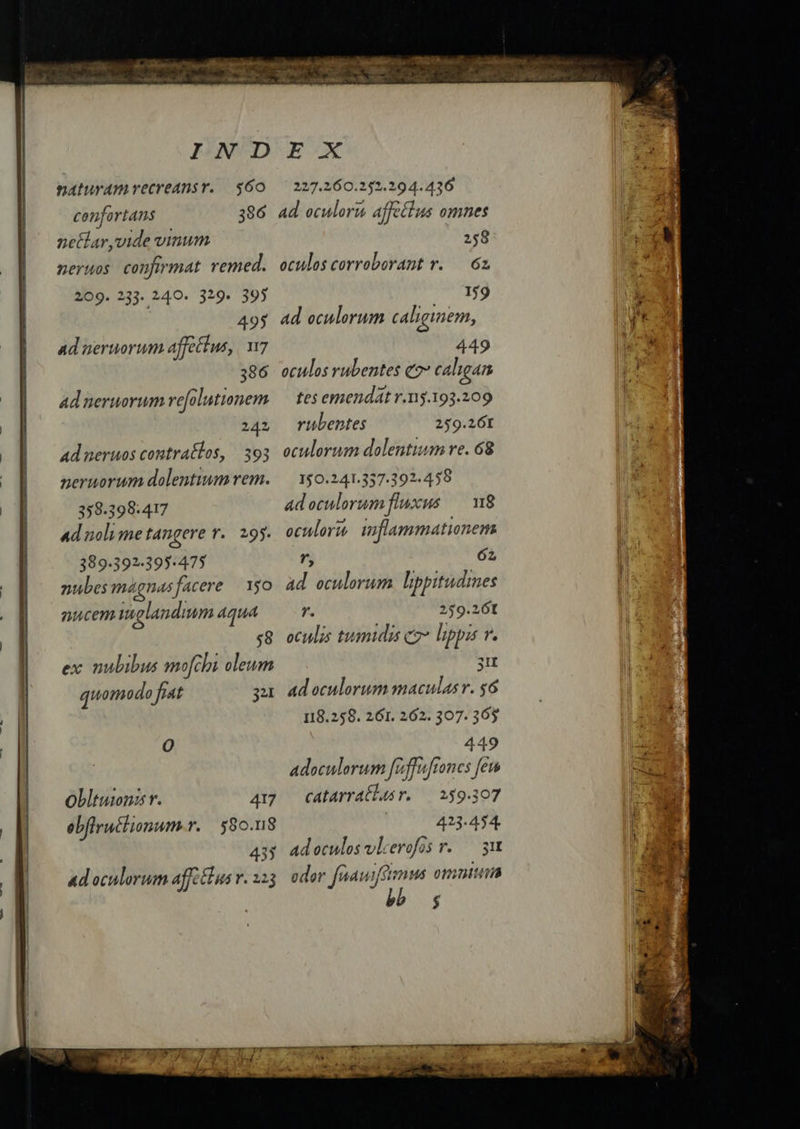 INDEX
naturam recreans r. 560
confortans 386
nectar, vide vinum
neruos confirmat remed.
209. 233. 240. 329. 395
495
ad neruorum affectus, 117
386
ad neruorum reſolutionem
242
ad neruos contractos, 393
neruorum dolentium rem.
358.398.417
ad noli me tangere r. 295.
389.392.395.475
nubes magnas facere 150
nucem iuglandium aqua
58
ex nubibus moſchi oleum
quomodo fiat 321
O
Obliuionis r. 417
obſtructionum r. 580.118
435
ad oculorum affectus r. 223
227.260.252.294.436
ad oculorū affectus omnes
258
oculos corroborant r. 62
159
ad oculorum caliginem,
449
oculos rubentes & caligan
tes emendat r.115.193.209
rubentes 259.261
oculorum dolentium re. 68
150.241.337.392.458
ad oculorum fluxus 118
oculorū inflammationem
r, 62
ad oculorum lippitudines
r. 259.261
oculis tumidis & lippis r.
311
ad oculorum maculas r. 56
118.258. 261. 262. 307. 365
449
ad oculorum ſuffuſiones ſeu
catarractas r. 259.307
423.454
ad oculos vlceroſos r. 311
odor ſuauiſsimus omnium
bb 5